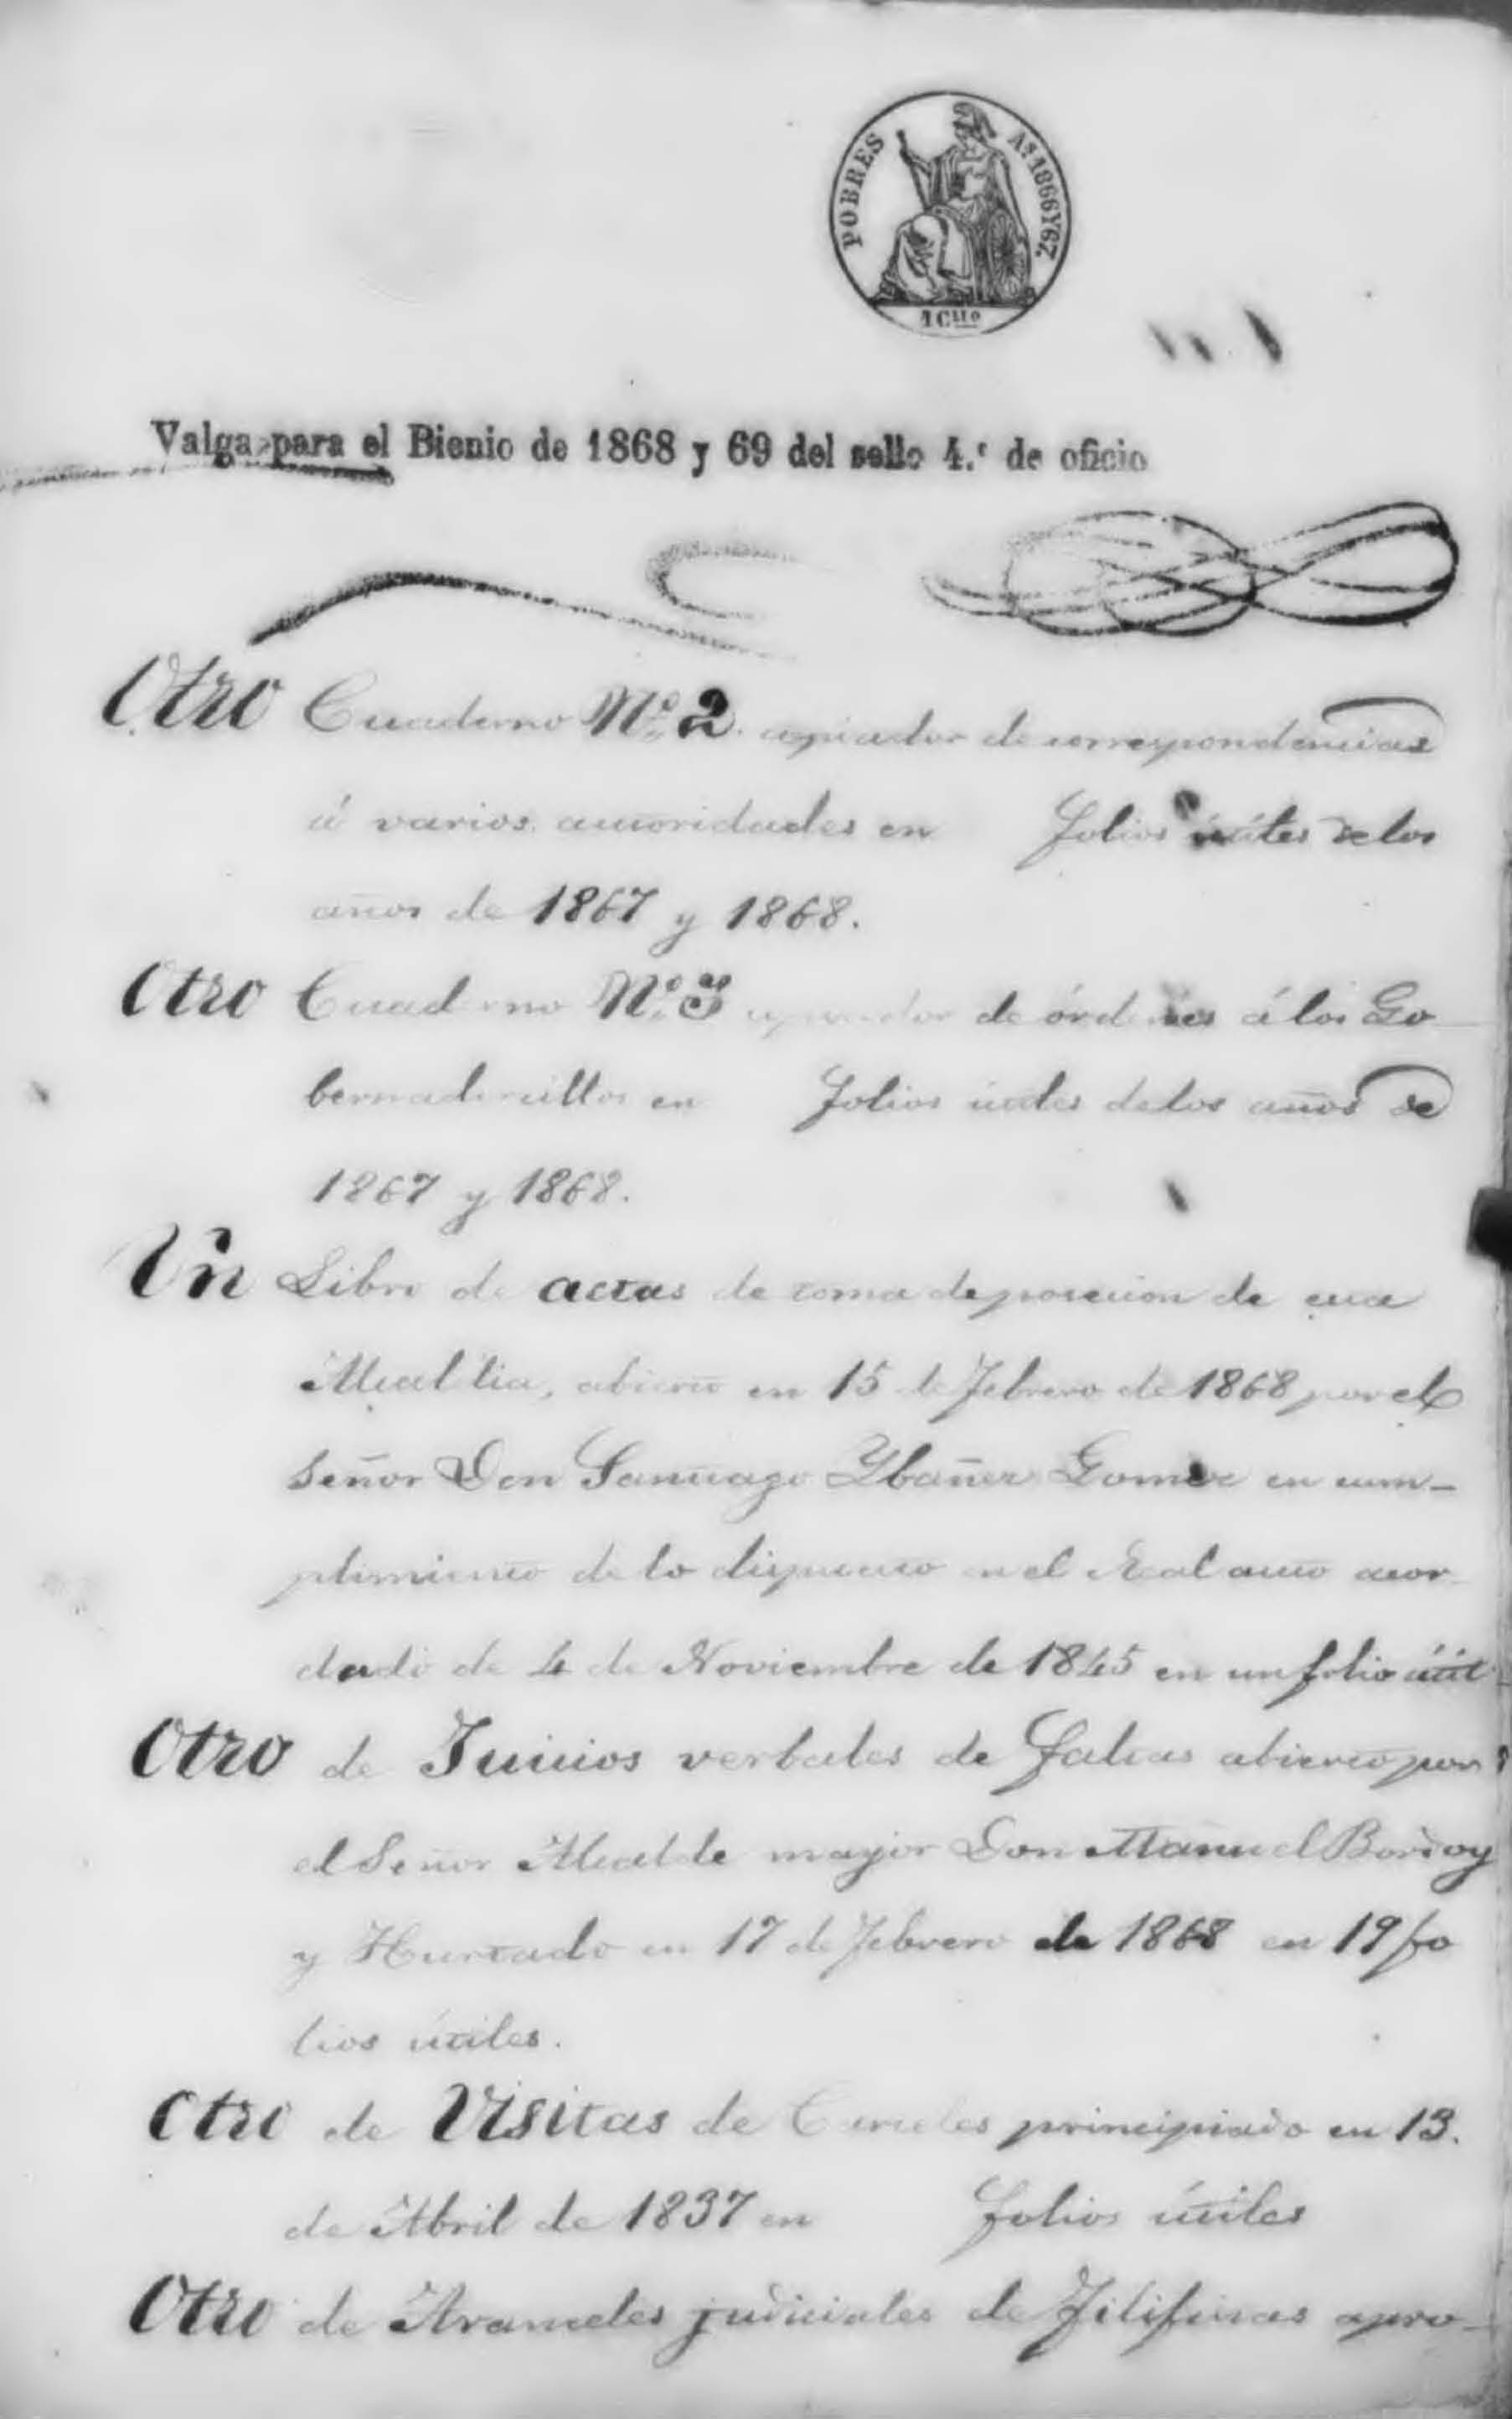 POBRES Aˢ 1866 Y 67.
1 Cᵗᵗᵒ
Valga para el Bienio de 1868 y 69 del sello 4.º de oficio
Otro Cuaderno Nº 2. copiador de correspondencias
á varios autoridades en folios útiles de los
años de 1867 y 1868.
Otro Cuaderno Nº 3 copiador de órdenes á los Go
bernadorcillos en folios útiles delos años de
1867 y 1868.
Un Libro de actas de toma de posecion de esta
Alcaldia, abierto en 15 de Febrero de 1868 por el
Señor Don Santiago Ybañez Gomez en cum-
plimiento de lo dispuesto en el Real auto acor
dado de 4 de Noviembre de 1845 en un folio útil
Otro de Juicios verbales de faltas abierto por
el Señor Alcalde mayor Don Manuel Bordoy
y Hurtado en 17 de Febrero de 1868 en 19 fo
lios útiles.
Otro de Visitas de Carceles principiado en 13.
de Abril de 1837 en folios útiles
Otro de Aranceles judiciales de Filipinas apro-